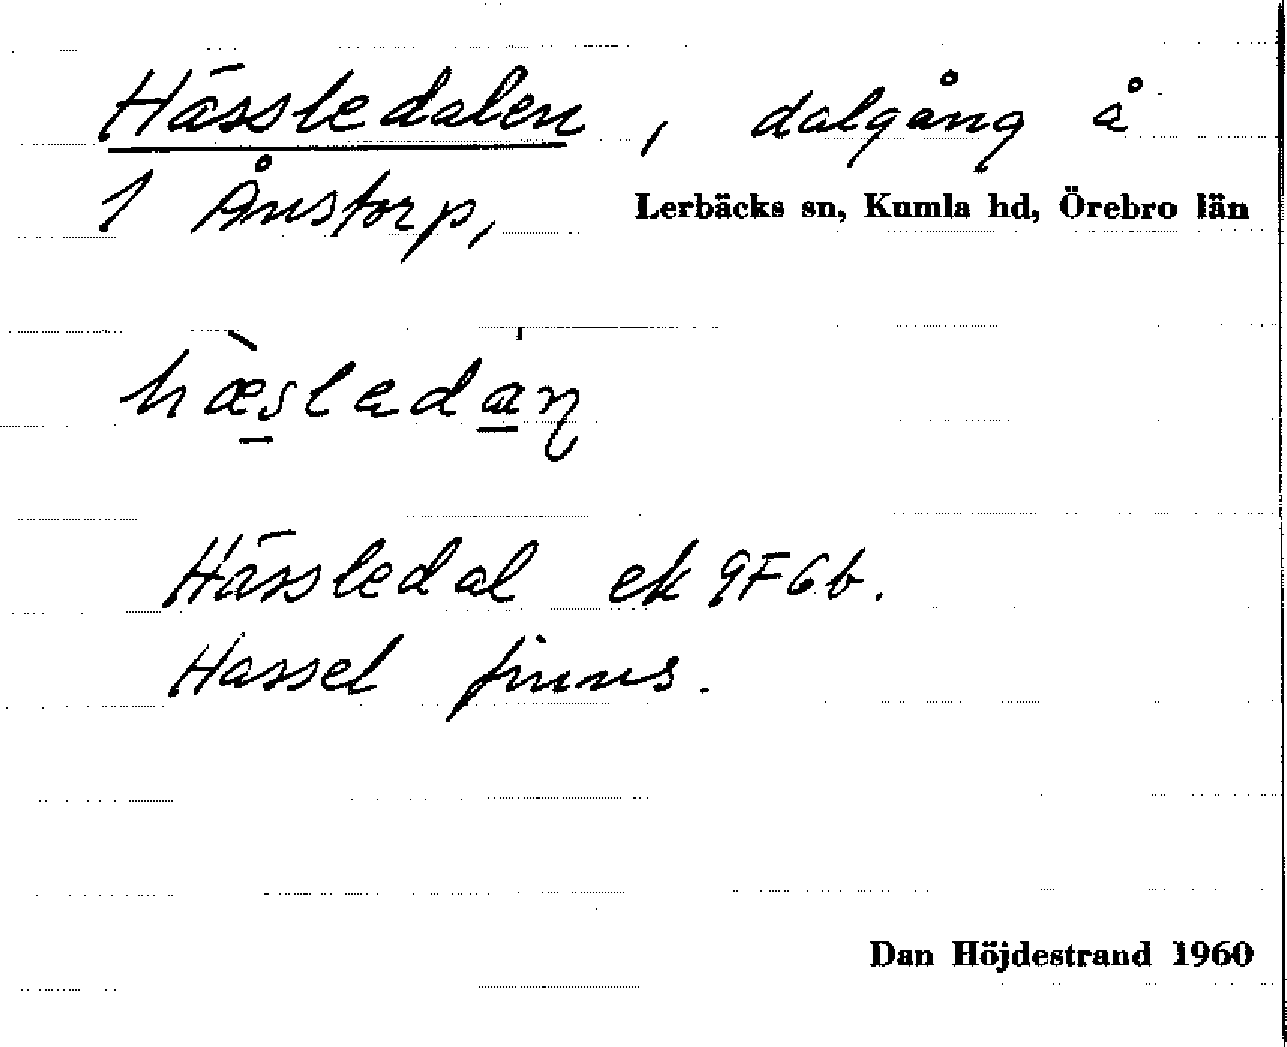 Hässledalen, dalgång å
1 Ånstorp, Lerbäcks sn, Kumla hd, Örebro län
hæ̀sledaṇ
Hässledal ek 9F6b.
Hassel finns.
Dan Höjdestrand 1960